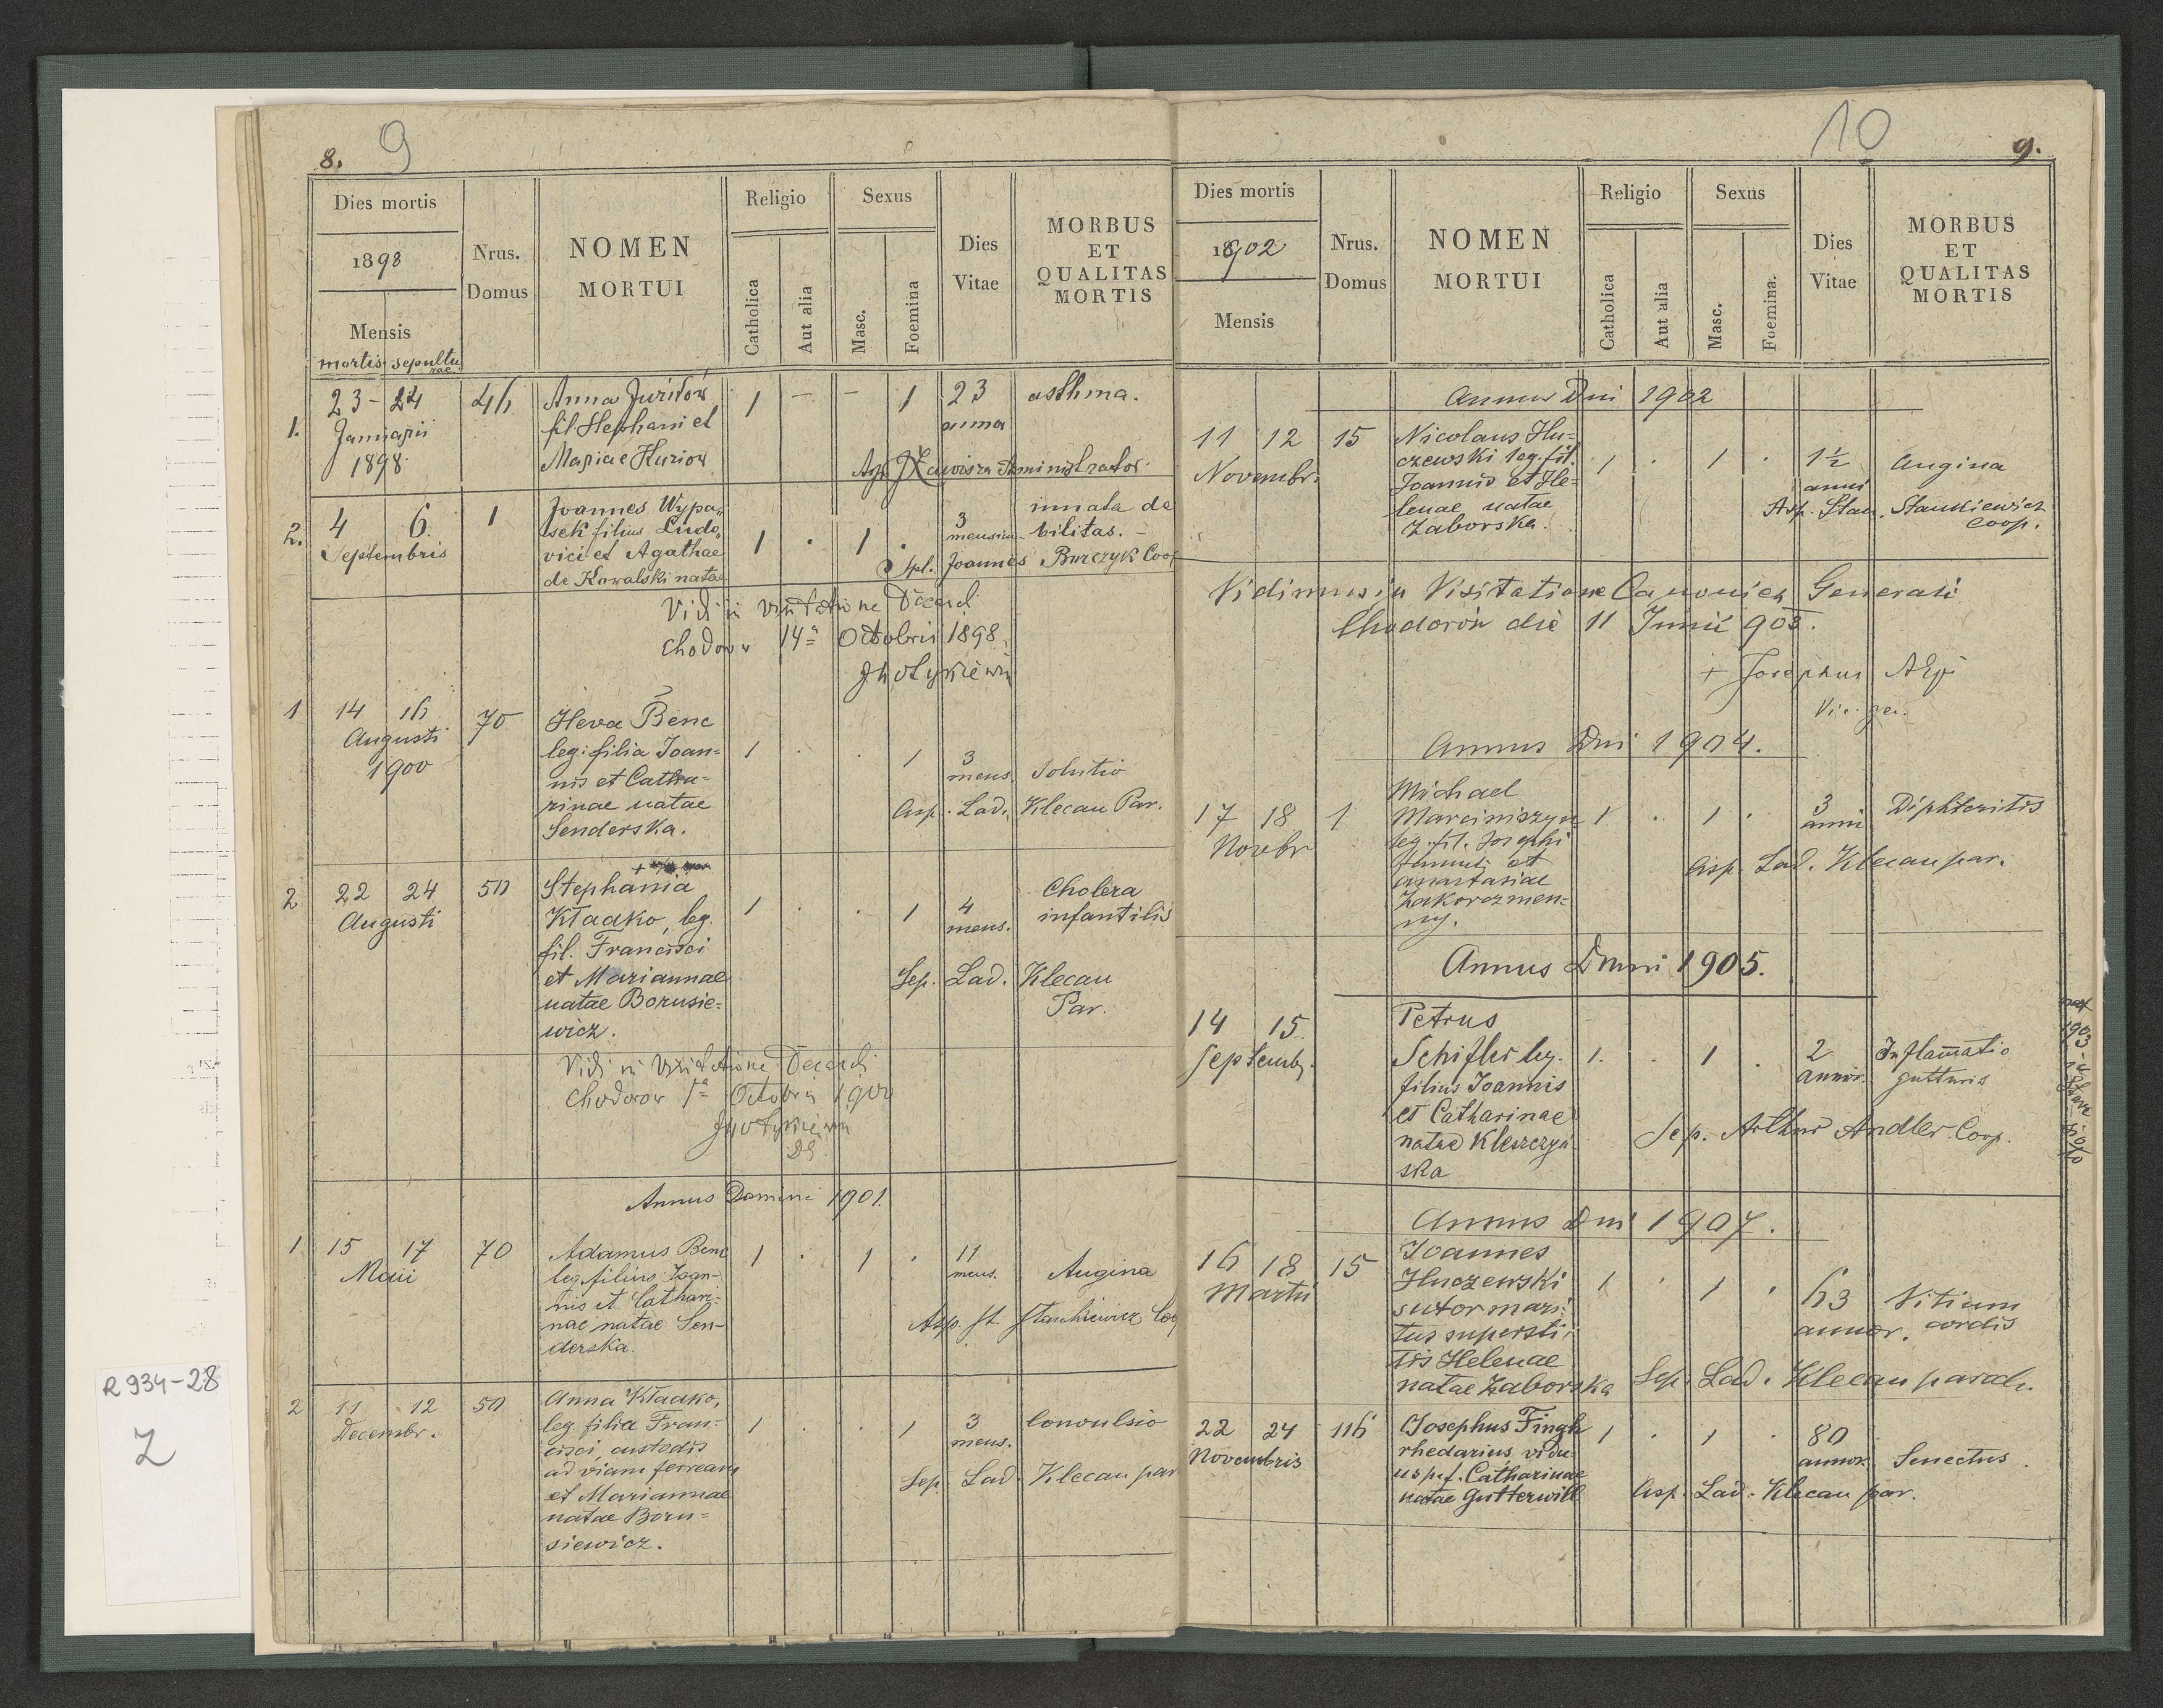 8.
9
Dies mortis
1898
Mensis
mortis sepultu
rae
Nrus.
Domus
NOMEN
MORTUI
Religio
Catholica
Aut alia
Sexus
Masc.
Foemina
Dies
Vitae
MORBUS
ET
QUALITAS
MORTIS
1.
23 - 24
Januarii
1898
46
Anna
fil Stephani et
Mariae
1 - - 1
23
anna
asthma.
Administrator
2.
4 6
Septembris
1
Joannes Wypa„
sek filius Ludo„
vici et Agathae
de Kowalski natae
1 . 1 .
3
mensium
innata de
bilitas. -
Joannes Burczyk Coop
Vidi in visitatione Decanali
Chodorow 14a Octobris 1898
1
14 16
Augusti
1900
70
Heva Benc
leg: filia Joan=
nis et Catha=
rinae natae
Senderska.
1 . . 1
3
mens.
Solutio
Asp. Lad. Klecan Par.
2
22 24
Augusti
50
Stephania
Kładko, leg.
fil. Francisci
et Mariannae
natae Borusie=
wicz.
1 . . 1
4
mens.
Cholera
infantilis
Sep. Lad. Klecan
Par.
Vidi in Visitatione Decanali
Chodorow 1a Octobris 1900
Annus Domini 1901.
1
15 17
Maii
70
Adamus Benc
leg filius Joan-
nis et Cathari=
nae natae Sen-
derska.
1 . 1 .
11
mens.
Angina
Asp. St. Stankiewicz Coop
2
11 12
Decembr.
50
Anna Kładko,
leg. filia Fran=
cisci custodis
ad viam ferream
et Mariannae
natae Boru=
siewicz.
1 . . 1
3
mens.
Convulsio
Sep. Lad. Klecan par
10
9.
Dies mortis
1902
Mensis
Nrus.
Domus
NOMEN
MORTUI
Religio
Catholica
Aut alia
Sexus
Masc.
Foemina.
Dies
Vitae
MORBUS
ET
QUALITAS
MORTIS
Annus Dni 1902
11 12
Novembr.
15
Nicolaus Hu=
czewski leg. fil.
Joannis et He=
lenae natae
Zaborska.
1 . 1 .
1½
anni
Angina
Asp. Stan. Stankiewicz
coop.
Vidimus in Visitatione Canonica Generali
Chodorów die 11 Junii 903.
+ Josephus
Annus Dni 1904.
17 18
Novebr
1
Michael
Marciniszyn
leg. fil. Josephi
famuli et
Anastasiae
Zakorczmen=
nyj.
1 . 1 .
3
anni
Diphteritis
Asp. Lad. Klecan par.
Annus Domni 1905.
14 15
Septemb.
Petrus
Schifler leg.
filius Joannis
et Catharinae
natae Kleszczyń
ska
1. . 1 .
2
annor.
Inflamatio
gutturis
Sep. Arthur Andler Coop.
nat
1903
Annus Dni 1907.
16 18
Martii
15
Joannes
Huczewski
sutor mari:
tus supersti:
tis Helenae
natae Zaborska
1 . 1 .
63
annor.
Vitium
cordis
Sep. Lad. Klecan paroch.
22 24
Novembris
116
Josephus Fingh
rhedarius, vidu=
us p.f. Catharinae
natae Gutterwill
1 . 1 .
80
annor.
Senectus.
Asp. Lad. Klecan par.
R 934-28
Z